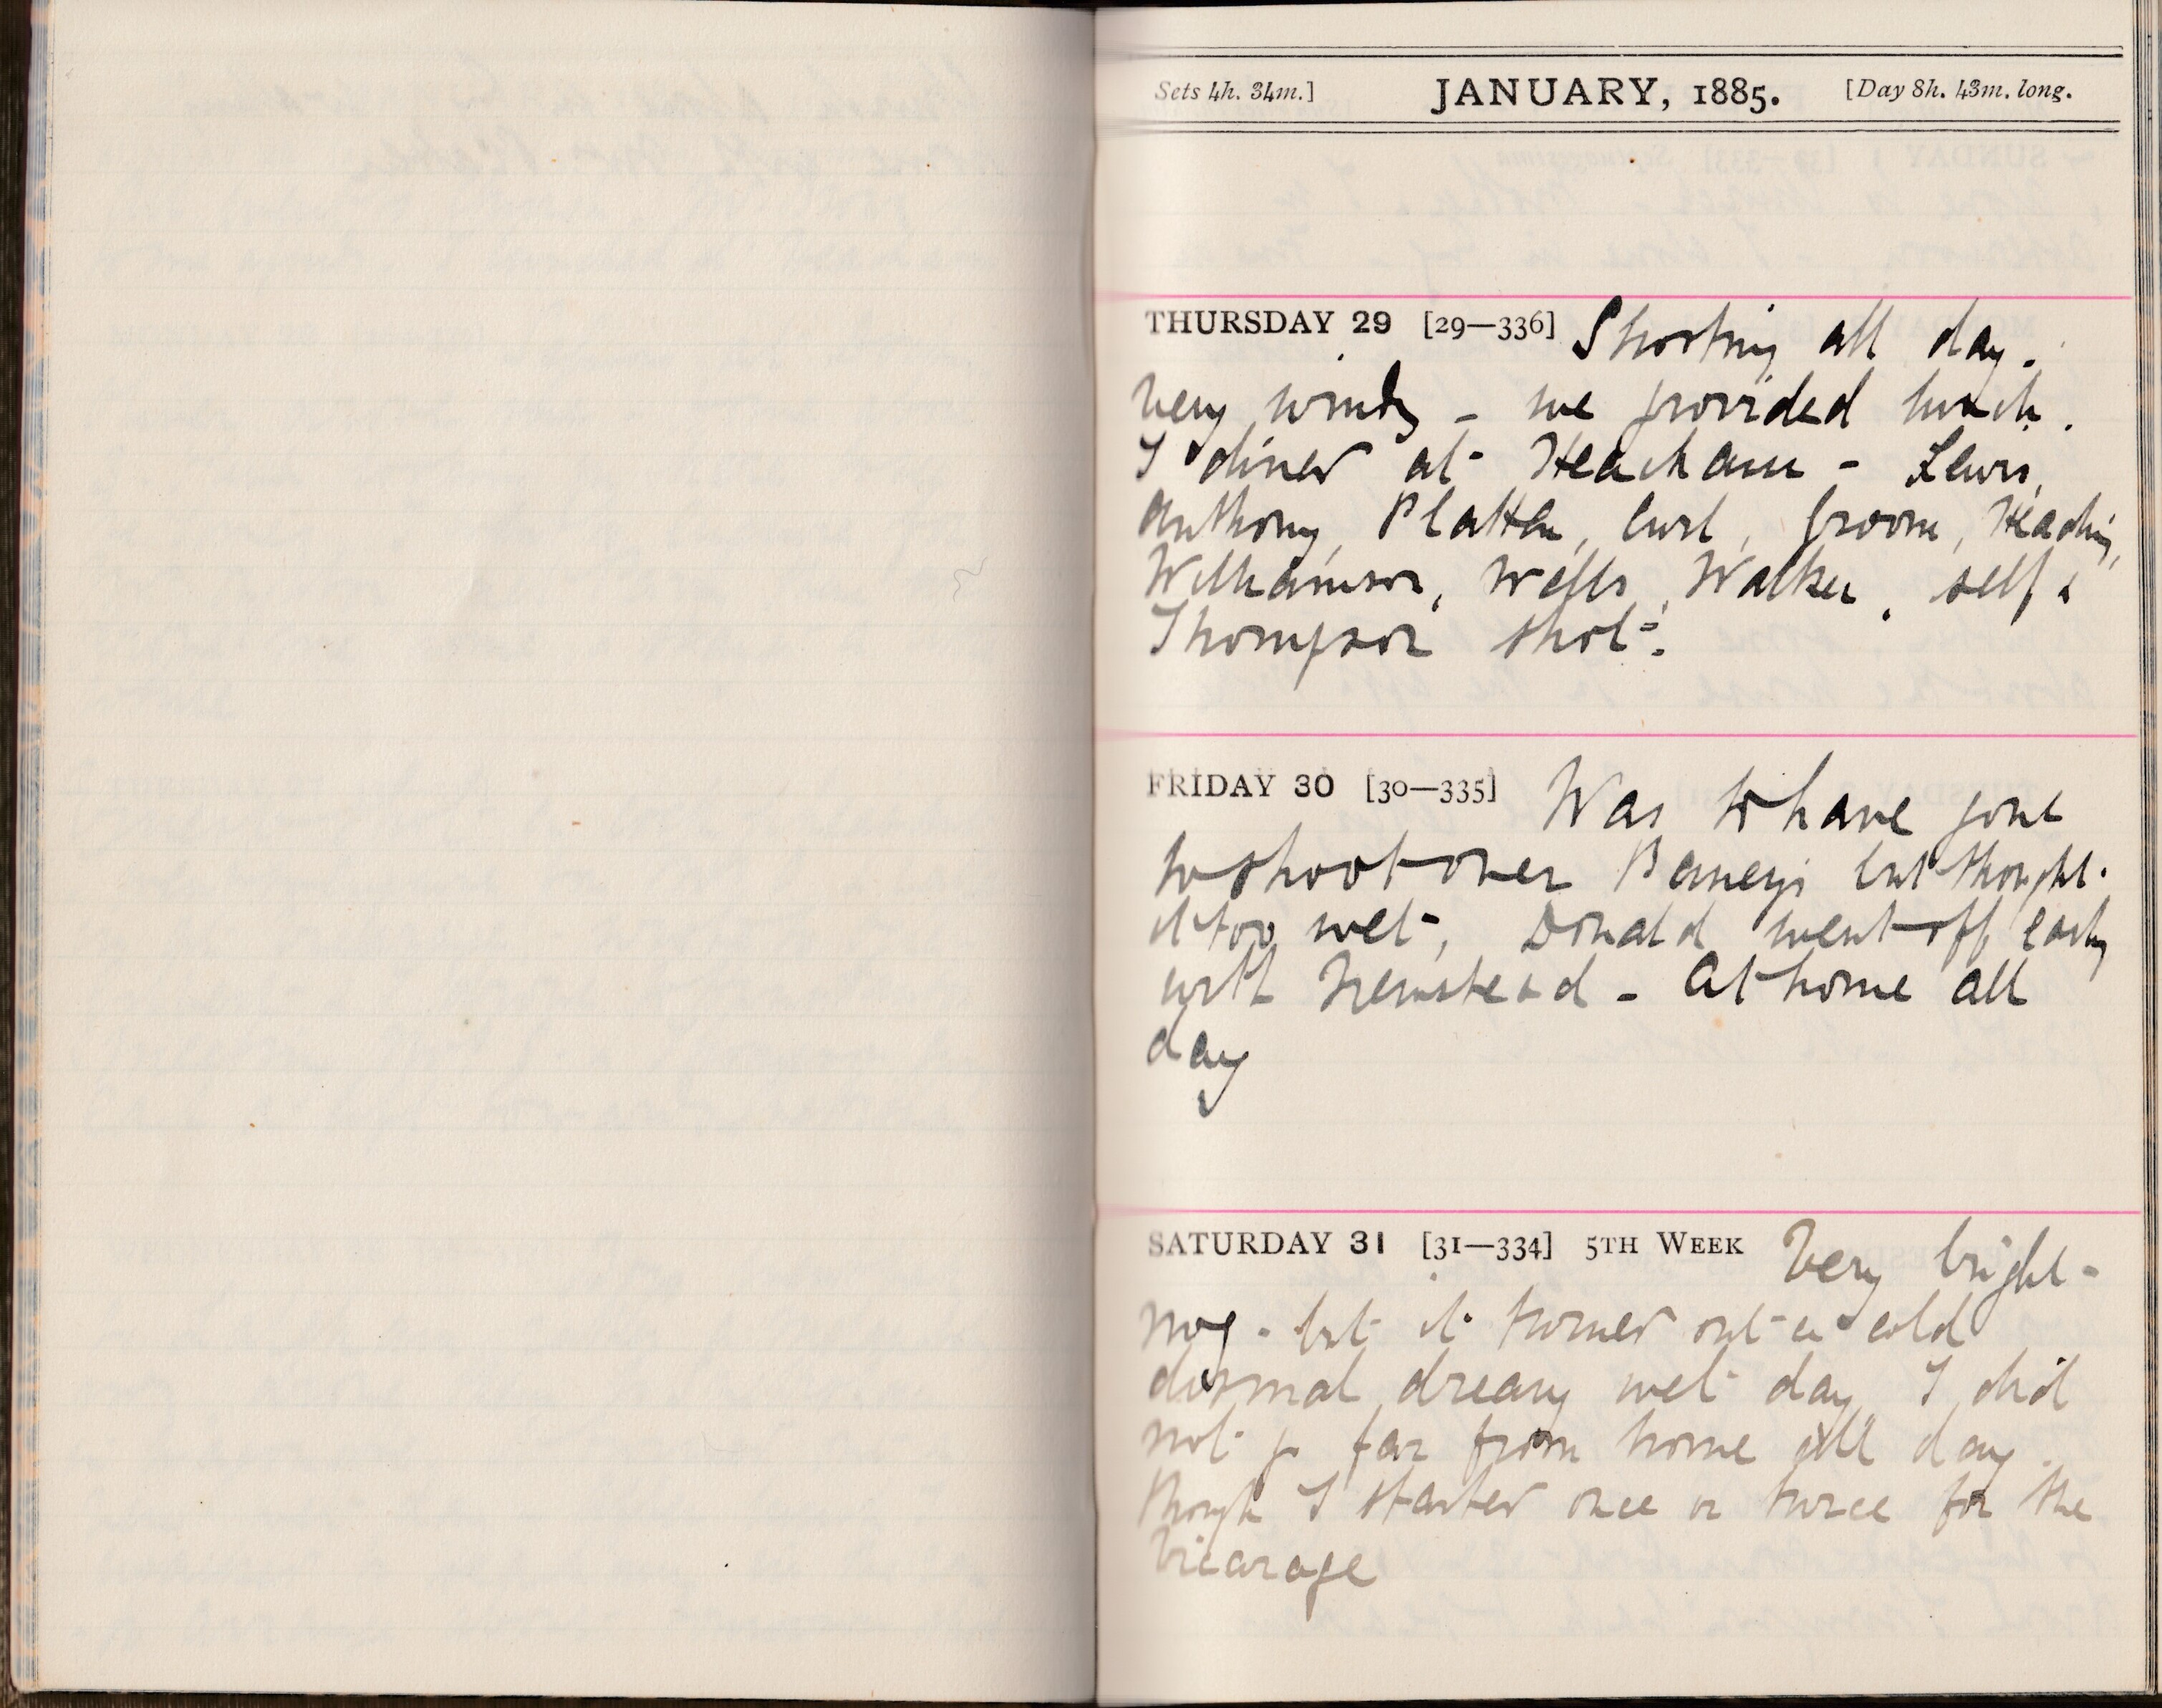 Sets 4h. 34m.] JANUARY, 1885. [Day 8h. 43m. long.
THURSDAY 29 [29—336] Shooting all day.
Very windy - we provided lunch.
I dined at Heacham - Lewis,
Anthony, Platten, Curl, Groom, Heading,
Williamson, Wells, Walker, self &
Thompson shot.
FRIDAY 30 [30—335] Was to have gone
to shoot over but thought
it too wet, Donald went off early
with - At home all
day
SATURDAY 31 [31—334] 5TH WEEK Very bright
mng - but it turned out a cold
dismal dreary wet day I did
not go far from home all day.
though I started once or twice for the
Vicarage